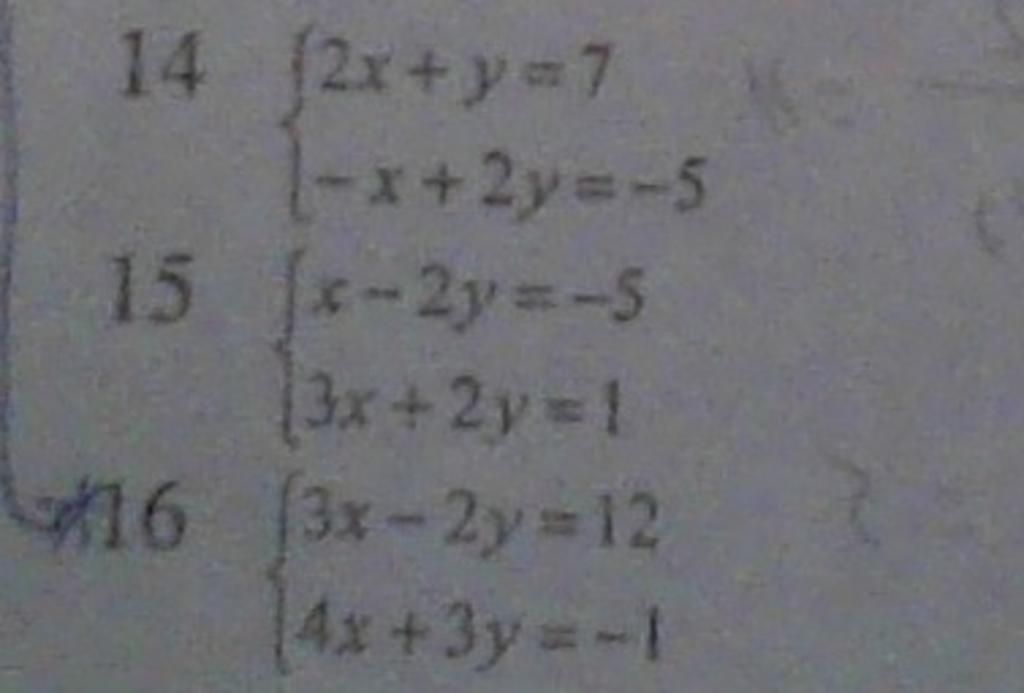 14 2x + y = 7
-x + 2y = -5
15 x - 2y = -5
3x + 2y = 1
16 3x - 2y = 12
4x + 3y = -1